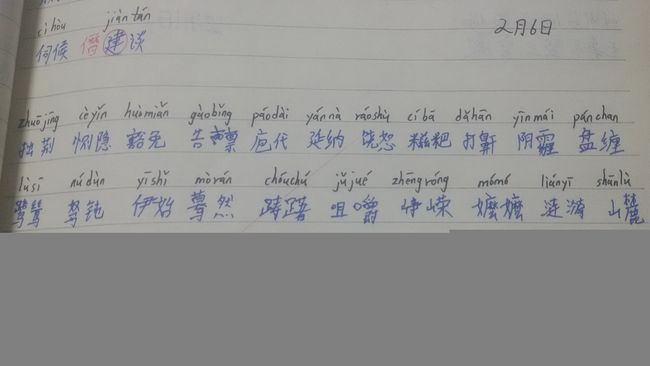 cì hòu jiàn tán
2月6日
伺候 僭建谈
zhuō jīng cè yǐn huò miǎn gào bǐng páo dài yán nà ráo shù cí bā dǎ hān yīn mái pán chan
拙荆 恻隐 豁免 告禀 庖代 延纳 饶恕 糍粑 打鼾 阴霾 盘缠
lù sī nú dùn yī shǐ mò rán chóu chú jǔ jué zhēng róng mó mó lián yī shān lù
鹭鸶 驽钝 伊始 蓦然 踌躇 咀嚼 峥嵘 嬷嬷 涟漪 山麓